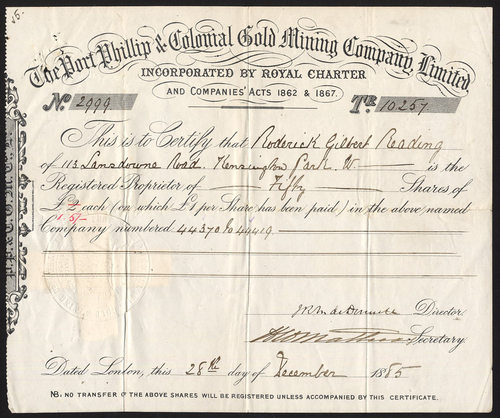 15.
The Port Phillip & Colonial Gold Mining Company, Limited.
INCORPORATED BY ROYAL CHARTER
AND COMPANIES' ACTS 1862 & 1867.
No. 2999 Tr. 10257
This is to Certify that Roderick Gilbert Reading
of 113 Lansdowne Road. Kensington Park. W is the
Registered Proprietor of Fifty Shares of
£2 each (on which £1 per Share has been paid) in the above named
1.5/-
Company numbered 44370 to 44419
Director
Secretary.
Dated London, this 28th day of December 1885
NB. NO TRANSFER OF THE ABOVE SHARES WILL BE REGISTERED UNLESS ACCOMPANIED BY THIS CERTIFICATE.